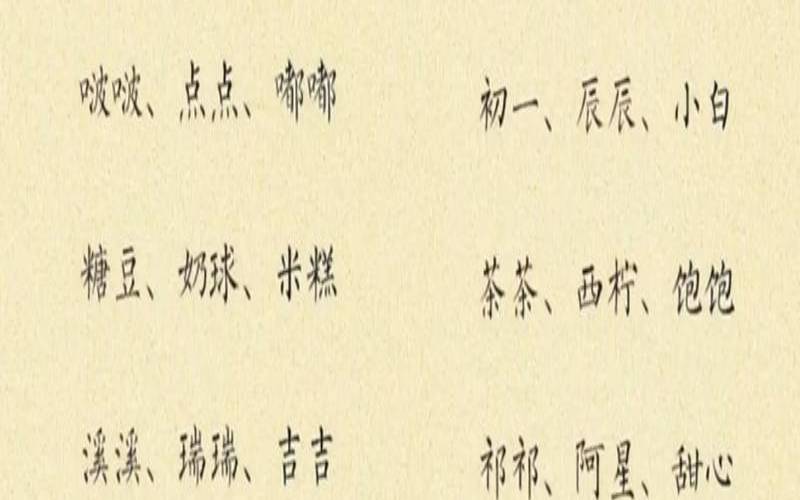 啵啵、点点、嘟嘟
初一、辰辰、小白
糖豆、奶球、米糕
茶茶、西柠、饱饱
溪溪、瑞瑞、吉吉
祁祁、阿星、甜心